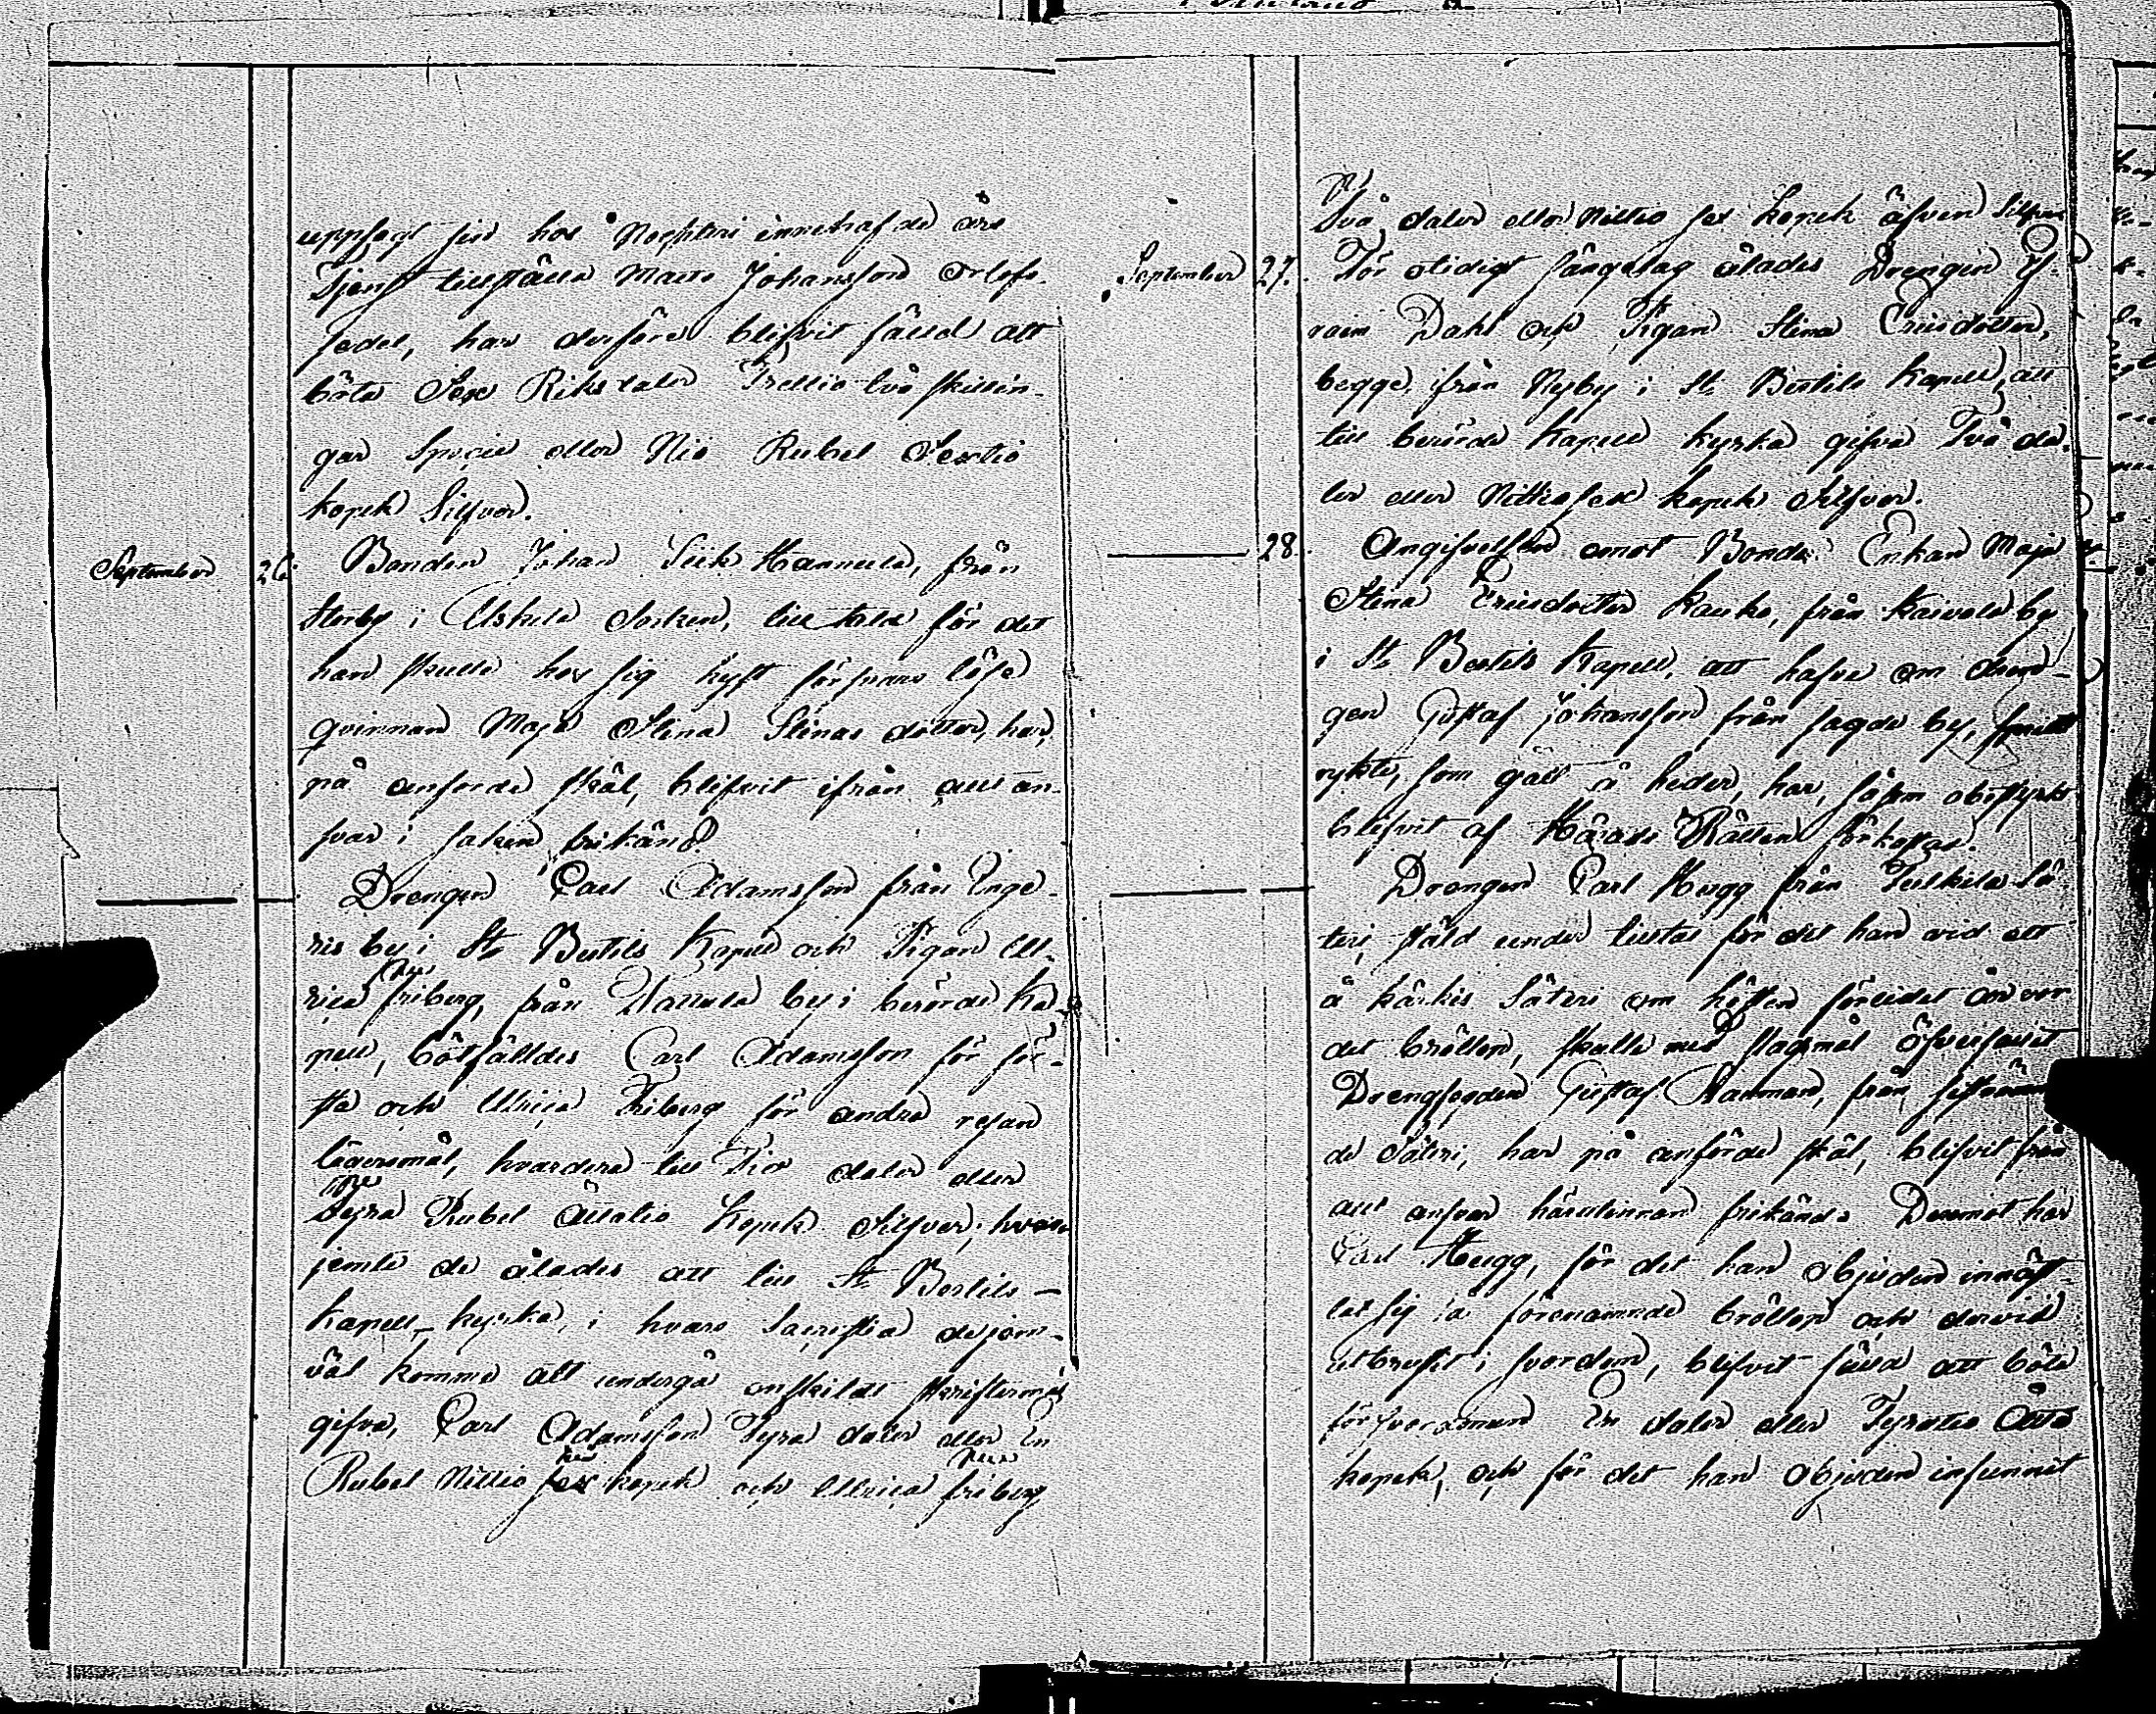 uppsagt sin hos Nogsteri innehafde års
Tjenst tillställa Matts Johansson Orlofs-
sedel, har derföre blifvit fälld att
böta Sex Riksdaler Trettio två skillin-
gar Specie eller Nio Rubel Sextio
kopek Silfver.
September 26. Bonden Johan Siik Hannula, från
Storby i Uskela Socken, tilltalad för det
han skulle hos sig hyst försvarslösa
qvinnan Maja Stina Stinas dotter, har,
på anförde skäl, blifvit ifrån allt an-
svar i saken frikänd.
Drengen Carl Adamsson från Inge-
ris by i St Bertils Kapell och Pigan Ul-
rica Friberg, från by i berörde Ka-
pell, bötfälldes Carl Adamsson för för-
sta och Ulrica Friberg för andra resan
lägersmål, hvardera till Tio daler eller
Fyra Rubel Åttatio Kopek Silfver; hvar-
jemte de ålades att till St Bertils
Kapell-kyrka, i hvars Sacristia de jem-
väl komma att undergå enskildt skriftermål
gifva, Carl Adamsson Fyra daler eller En
Rubel Nittio sex kopek och Ulrica Friberg
Två daler eller Nittio sex kopek äfven Silfver
September 27. För otidigt sängelag ålades Drengen Ef-
raim Dahl och Pigan Stina Ericsdotter,
begge från Nyby i St Bertils Kapell, att
till berörde Kapell kyrka gifva Två da-
ler eller Nittiosex kopek Silfver.
28. Angifvelsen emot Bonde Enkan Maja
Stina Ericsdotter Kauko, från Kaivola by
i St Bertils Kapell, att hafva om dren-
gen Gustaf Johansson från sagde by, spridt
rykte, som gått å heder, har, såsom obestyrkt
blifvit af Härads Rätten förkastad.
Drengen Carl Hugg från Sä-
teri, stäld under tilltal för det han vid ett
å Kärkis Säteri om hösten förlidet år vor
det bröllop, skulle med slagsmål öfverfallit
Drengfogden Gustaf från sistnämn
de Säteri, har på anförde skäl, blifvit från
allt ansvar härutinnan frikänd. Deremot har
Carl Hugg, för det han objuden innäst-
lat sig å förenämnde bröllop och dervid
utbrustit i svordom, blifvit fälld att böta
för svordomen En daler eller Fyratio Åtta
kopek, och för det han objuden infunnit